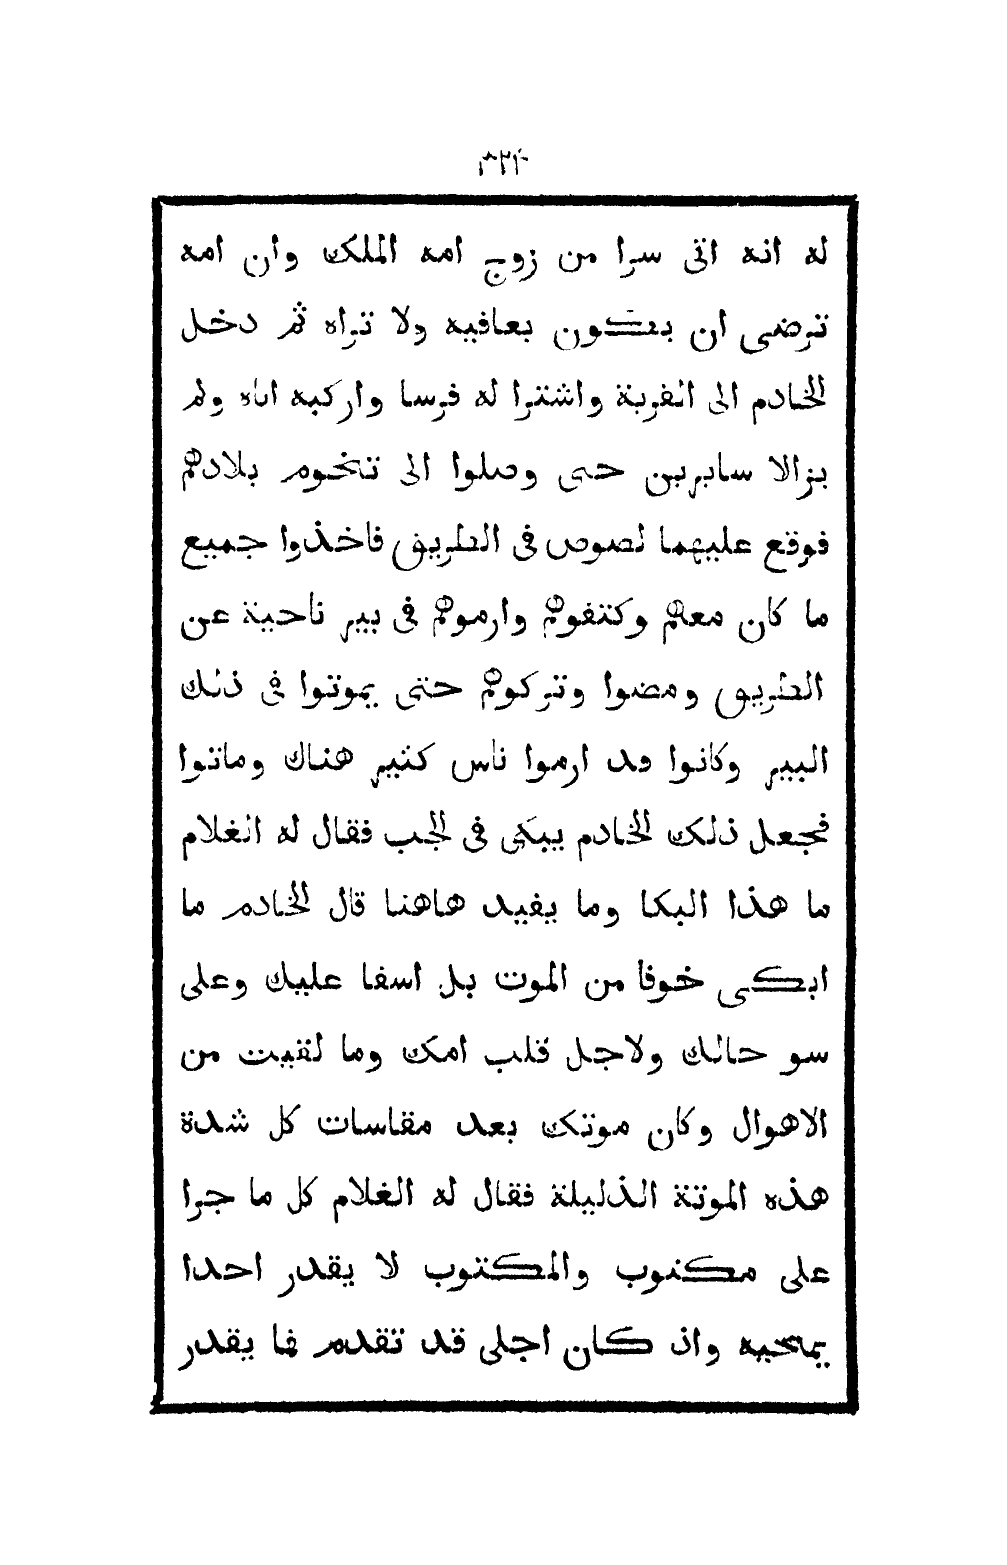 ٣٢٤
له انه اتى سرا من زوج امه الملك وان امه
ترضى ان يكون بعافيه ولا تراه ثم دخل
الخادم الى القرية واشترا له فرسا واركبه اياه ولم
يزالا سايرين حتى وصلوا الى تخوم بلادهم
فوقع عليهما لصوص فى الطريق فاخذوا جميع
ما كان معهم وكتفوهم وارموهم فى بير ناحية عن
الطريق ومضوا وتركوهم حتى يموتوا فى ذلك
البير وكانوا قد ارموا ناس كثير هناك وماتوا
فجعل ذلك الخادم يبكى فى الجب فقال له الغلام
ما هذا البكا وما يفيد هاهنا قال الخادم ما
ابكى خوفا من الموت بل اسفا عليك وعلى
سو حالك ولاجل قلب امك وما لقيت من
الاهوال وكان موتك بعد مقاسات كل شدة
هذه الموتة الذليلة فقال له الغلام كل ما جرا
على مكتوب والمكتوب لا يقدر احدا
يمحيه واذ كان اجلى قد تقدم فما يقدر